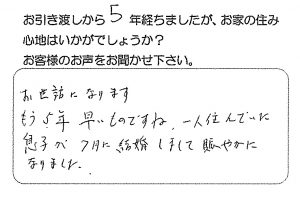 お引き渡しから 5 年経ちましたが、お家の住み
心地はいかがでしょうか？
お客様のお声をお聞かせ下さい。
お世話になります
もう5年 早いものですね、一人住んでいた
息子が 7月に結婚しまして賑やかに
なりました。